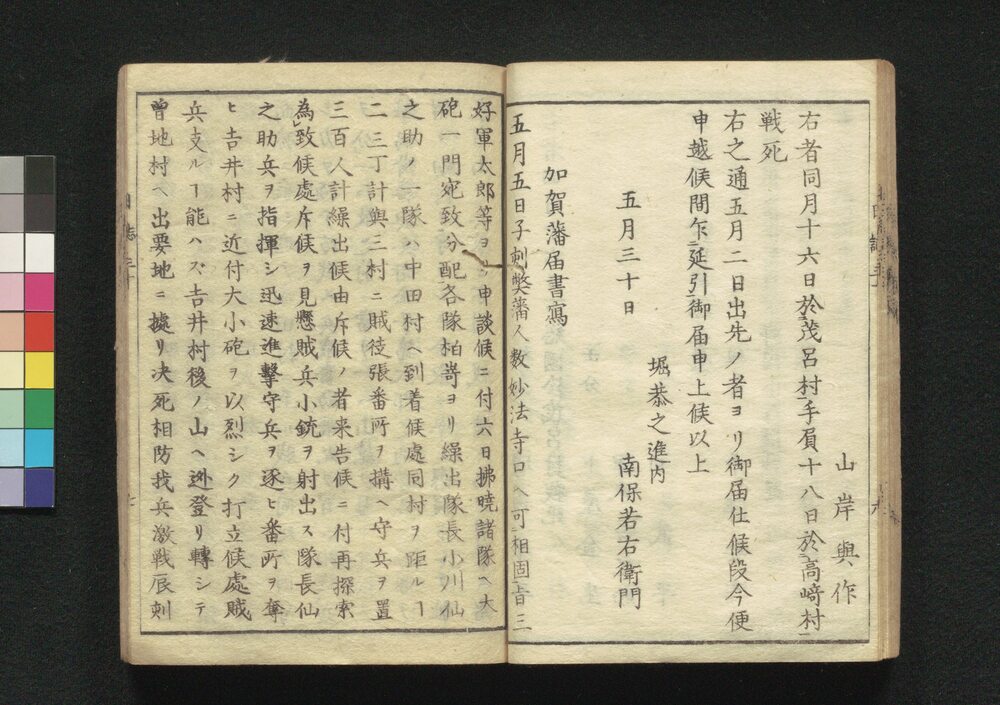 山岸與作
右者同月十六日於茂呂村手負十八日於高﨑村
戦死
右之通五月二日出先ノ者ヨリ御届仕候段今便
申越候間乍延引御届申上候以上
堀恭之進内
五月三十日　南保若右衛門
加賀藩届書寫
五月五日子刻獘藩人数妙法寺口ヘ可相固旨三
好軍太郎等ヨリ申談候ニ付六日拂曉諸隊ヘ大
砲一門宛致分配各隊柏崎ヨリ繰出隊長小川仙
之助ノ一隊ハ中田村ヘ到着候處同村ヲ距ルヿ
二三丁計與三村ニ賊徒張番所ヲ搆ヘ守兵ヲ置
三百人計繰出候由斥候ノ者来告候ニ付再探索
為致候處斥候ヲ見懸賊兵小銃ヲ射出ス隊長仙
之助兵ヲ指揮シ迅速進撃守兵ヲ逐ヒ番所ヲ奪
ヒ吉井村ニ近付大小砲ヲ以烈シク打立候處賊
兵支ルヿ能ハス吉井村後ノ山ヘ迯登リ轉シテ
曽地村ヘ出要地ニ據リ决死相防我兵激戦辰刺